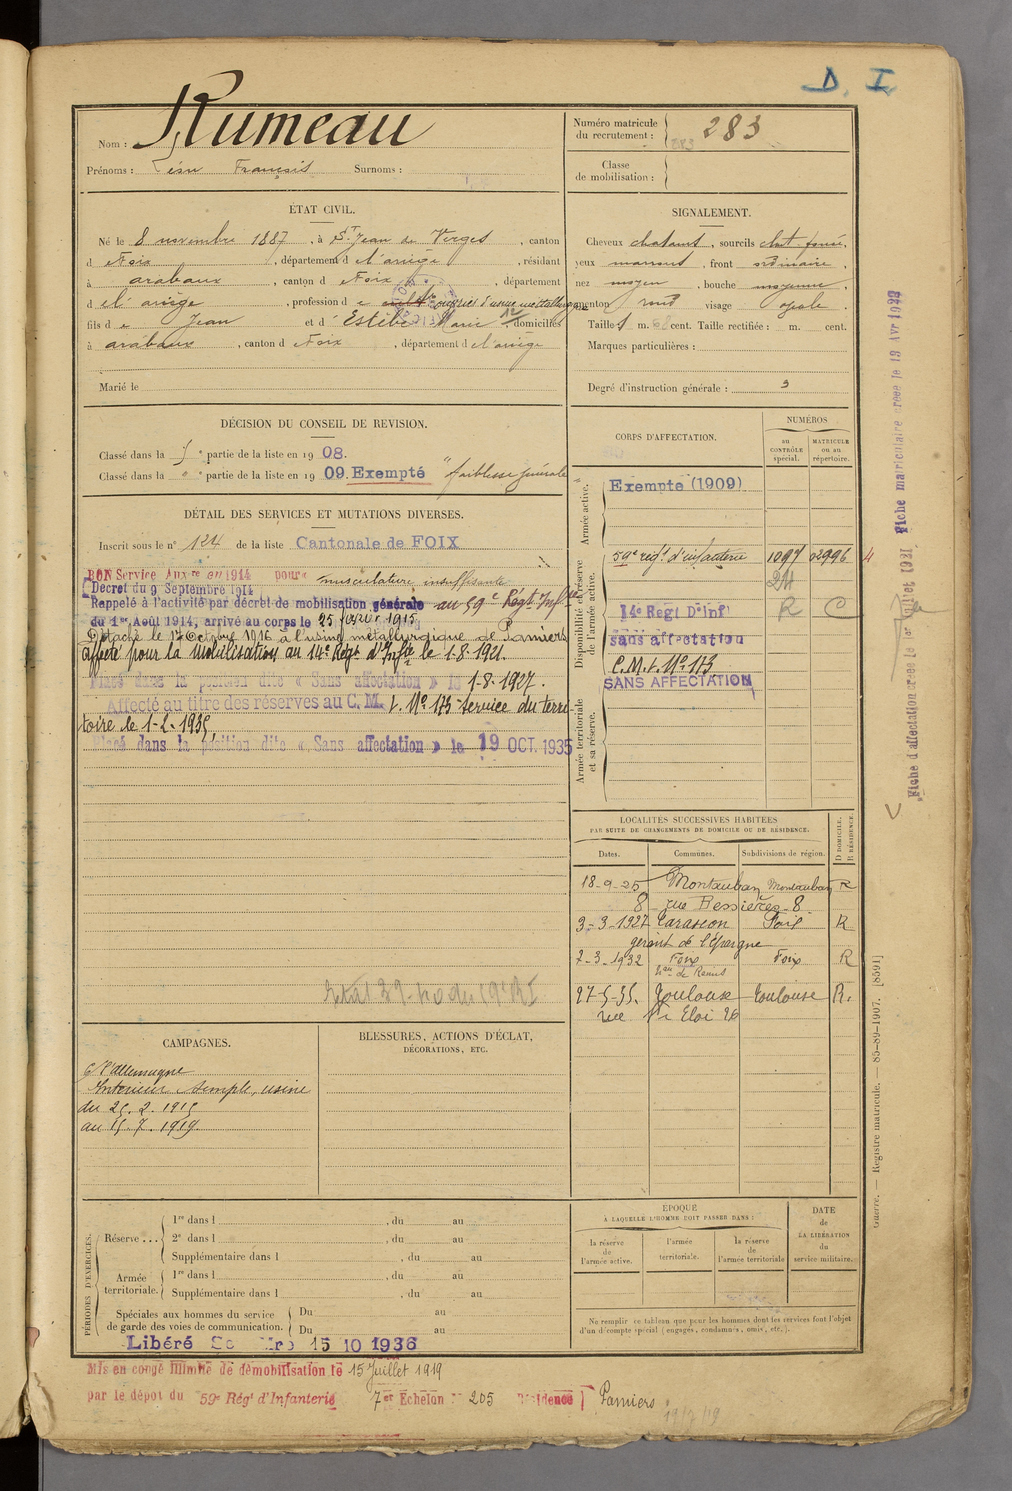 D. I.
Nom : Rumeau
Prénoms : Léon François Surnoms :
Numéro matricule
du recrutement : 283
Classe
de mobilisation :
ÉTAT CIVIL.
Né le 8 novembre 1887, à St Jean de Verges, canton
d Foix, département d e l'ariège, résidant
à arabaux, canton d Foix, département
d e l'ariège, profession d e cult Comptes d'usine métallurgique
fils d e Jean et d' Estèbe Marie domiciliés
à arabaux, canton d Foix, département d e l'ariège
Marié le
SIGNALEMENT.
Cheveux chatains, sourcils chat. foncé,
yeux marrons, front ordinaire,
nez moyen, bouche moyenne,
menton rond visage ovale.
Taille 1 m. 68 cent. Taille rectifiée : m. cent.
Marques particulières :
Degré d'instruction générale : 3
DÉCISION DU CONSEIL DE REVISION.
Classé dans la 5e partie de la liste en 1908.
Classé dans la " e partie de la liste en 1909. Exempté " faiblesse générale
DÉTAIL DES SERVICES ET MUTATIONS DIVERSES.
Inscrit sous le n° 124 de la liste Cantonale de FOIX
BON Service Auxre en 1914 pour musculature insuffisante
Décret du 9 Septembre 1914
Rappelé à l'activité par décret de mobilisation générale au 59e Régt Inf
du 1er Août 1914, arrivé au corps le 25 février 1915
Détaché le 17 Octobre 1916 à l'usine métallurgique de Pamiers
Affecté pour la Mobilisation au 14e Régt d'Infie le 1-8-1921.
Placé dans la position dite « Sans affectation » le 1-8-1927.
Affecté au titre des réserves au C. M. t. No 173 Service du terri-
toire le 1-2-1935,
Placé dans la position dite « Sans affectation » le 19 OCT. 1935
CORPS D'AFFECTATION.
NUMÉROS
au CONTRÔLE spécial.
MATRICULE ou au répertoire.
Armée active.
Exempte (1909)
Disponibilité et réserve de l'armée active.
59e régt d'infanterie 1097 02996
24
14e Regt D'inf R C
sans affectation
C. M. t. No 173
SANS AFFECTATION
Armée territoriale et sa réserve.
Fiche matriculaire créée le 19 Avr 1922
Fiche d'affectation créée le 1er Juillet 1921
LOCALITÉS SUCCESSIVES HABITÉES
PAR SUITE DE CHANGEMENTS DE DOMICILE OU DE RÉSIDENCE.
Dates. Communes. Subdivisions de région. D DOMICILE. R RÉSIDENCE.
18-9-25 Montauban Montauban R
8 rue Bessières 8
3-3-1927 Tarascon Foix R
gérant de l'Épargne
7-3-1932 Foix Foix R
27-5-35. Toulouse Toulouse R.
rue St Eloi 26
CAMPAGNES.
C l'allemagne
Intérieur simple, usine
du 25. 2. 1915
au 15. 7. 1919.
BLESSURES, ACTIONS D'ÉCLAT,
DÉCORATIONS, ETC.
PÉRIODES D'EXERCICES.
Réserve ...
1re dans l , du au
2e dans l , du au
Supplémentaire dans l , du au
Armée territoriale.
1re dans l , du au
Supplémentaire dans l , du au
Spéciales aux hommes du service
de garde des voies de communication.
Du au
Du au
Libéré 15 10 1936
ÉPOQUE
À LAQUELLE L'HOMME DOIT PASSER DANS :
la réserve de l'armée active.
l'armée territoriale.
la réserve de l'armée territoriale
DATE de LA LIBÉRATION du service militaire.
Ne remplir ce tableau que pour les hommes dont les services font l'objet
d'un décompte spécial (engagés, condamnés, omis, etc.).
Guerre. — Registre matricule. — 85-89-1907. [8591]
Mis en congé illimité de démobilisation le 15 Juillet 1919
par le dépot du 59e Régt d'Infanterie 7er Echelon n° 205 Résidence Pamiers
19/7/19